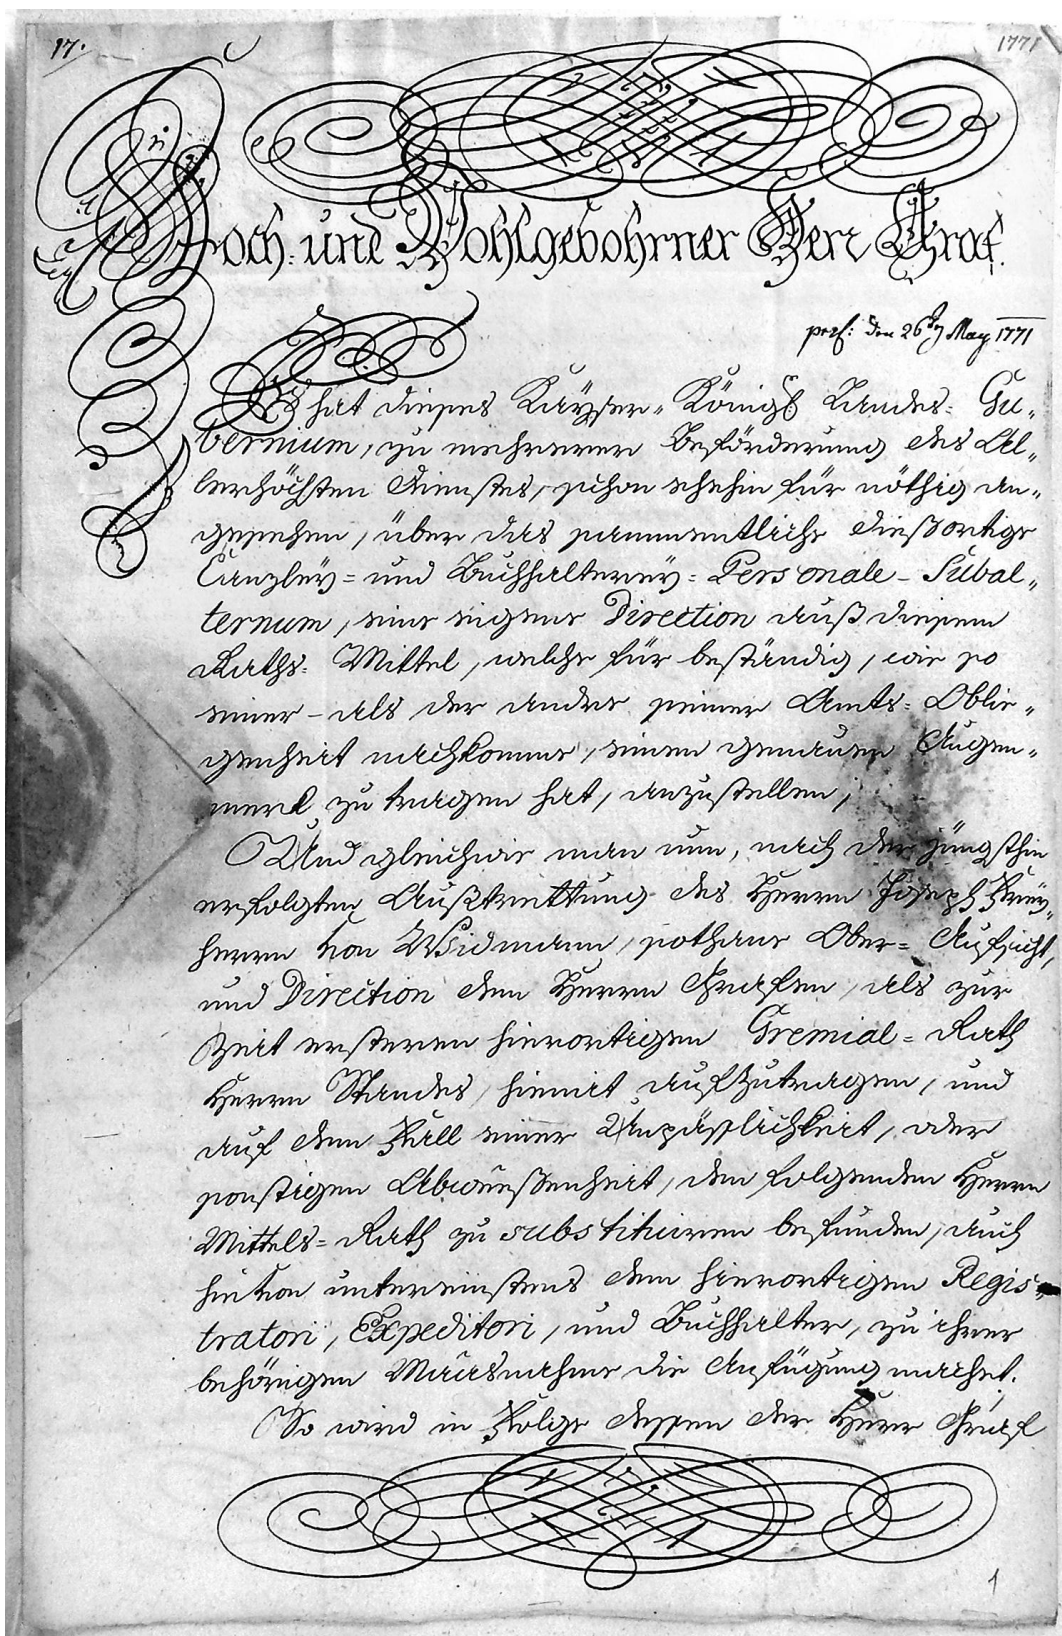 17.
1771
Hoch- und Wohlgebohrner Herr Graf.
præs: den 26ten May 1771
Es hat dieses Kayser- Königl Landes- Gu-
bernium, zu mehrerer Beförderung des Al-
lerhöchsten Dienstes, schon ehehin für nöthig an-
gesehen, über das sammentliche dießortige
Canzley- und Buchhalterey- Personale- Subal-
ternum, eine eigene Direction auß diesem
Raths- Mittel, welche für beständig, wie so
einer- als der andre seiner Amts- Oblie-
genheit nachkomme, einen genauen Augen-
merck zu tragen hat, anzustellen,
Und gleichwie man nun, nach der jüngsthin
erfolgten Außtrettung des Herrn Joseph Frey-
herrn von Widmann, sothane Ober- Aufsicht,
und Direction dem Herrn Grafen, als zur
Zeit ersteren hierortigen Gremial- Rath
Herrn Standes, hiemit aufzutragen, und
auf den Fall einer Unpässlichkeit, oder
sonstigen Abweßenheit, den folgenden Herrn
Mittels- Rath zu substituiren befunden, auch
hievon untereinstens dem hierortigen Regis-
tratori, Expeditori, und Buchhalter, zu ihrer
behörigen Maasnahme die Anfügung machet.
So wird in Folge dessen der Herr Graf
1